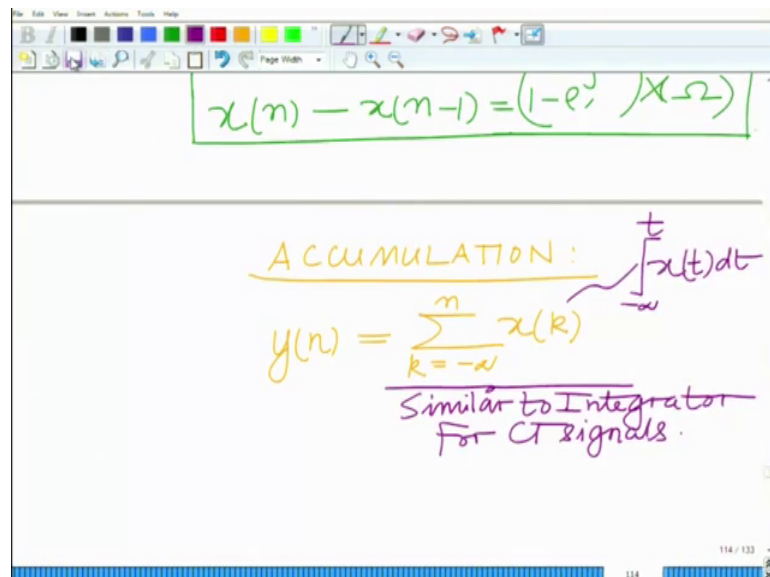 File Edit View Insert Actions Tools Help
B I
Page Width
x(n) - x(n-1) = (1-e^j )X(Ω)
ACCUMULATION:
∫_{-∞}^{t} x(t)dt
y(n) = ∑_{k=-∞}^{n} x(k)
Similar to Integrator
For CT signals.
114 / 133
114